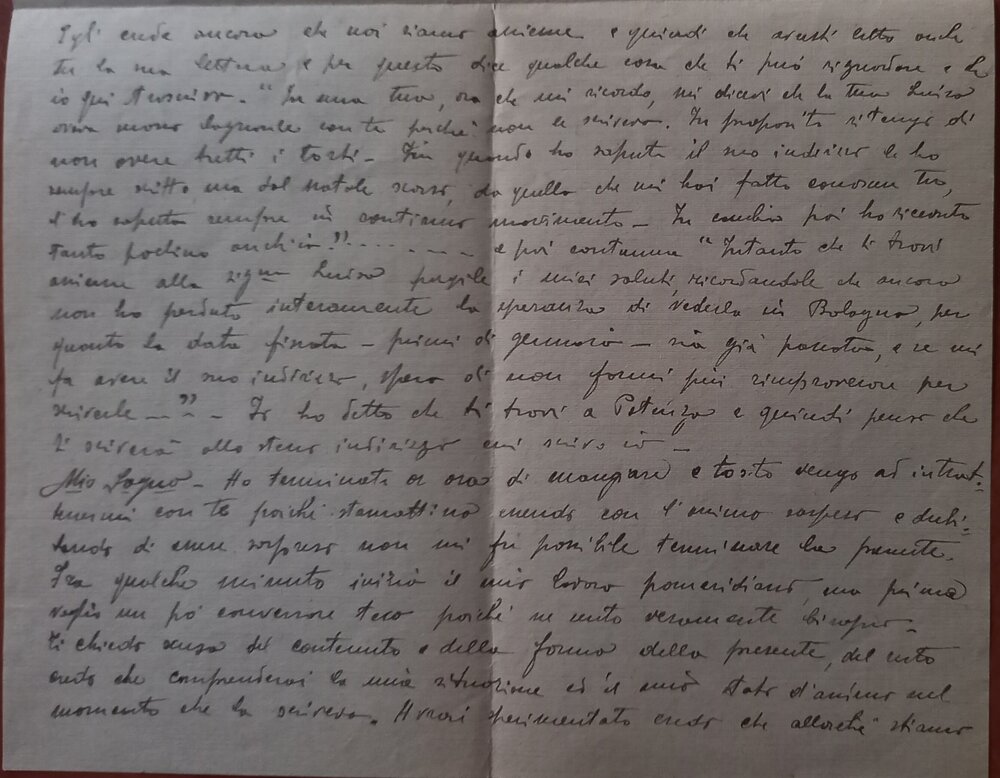 Egli crede ancora che noi siamo assieme e quindi che avresti letto anche
tu la sua lettera e per questo dice qualche cosa che ti può riguardare e che
io qui trascrivo. "In una tua, ora che mi ricordo, mi dicevi che la tua Luisa
erasi meco lagnando con te poichè non le scrivevo. In proposito ritengo di
non avere tutti i torti - Fin quando ho saputo il suo indirizzo le ho
sempre scritto ma dal natale scorso, da quello che mi hai fatto conoscere tu,
l'ho saputa sempre in continuo movimento - In cambio poi ho ricevuto
tanto pochino anch'io"? - - - - - - - e poi continua "Intanto che ti trovi
assieme alla signa Luisa porgile i miei saluti, ricordandole che ancora
non ho perduto interamente la speranza di vederla in Bologna, per
quanto la data fissata - primi di gennaio - sia già passata, e se mi
fa avere il suo indirizzo, spero di non farmi più rimproverare per
scriverle - " - Io ho detto che ti trovi a Potenza e quindi penso che
ti scriverà allo stesso indirizzo cui scrivo io -
Mio Sogno - Ho terminato or ora di mangiare e tosto vengo ad intrat=
tenermi con te poichè stamattina essendo con l'animo sospeso e dubi=
tando di essere sorpreso non mi fu possibile terminare la presente.
Fra qualche minuto inizia il mio lavoro pomeridiano, ma prima
voglio un pò conversare teco poichè ne sento veramente bisogno -
Ti chiedo scusa del contenuto e della forma della presente, del resto
credo che comprenderai la mia situazione ed il mio stato d'animo nel
momento che la scrivevo. Avrai sperimentato credo che allorchè stiamo